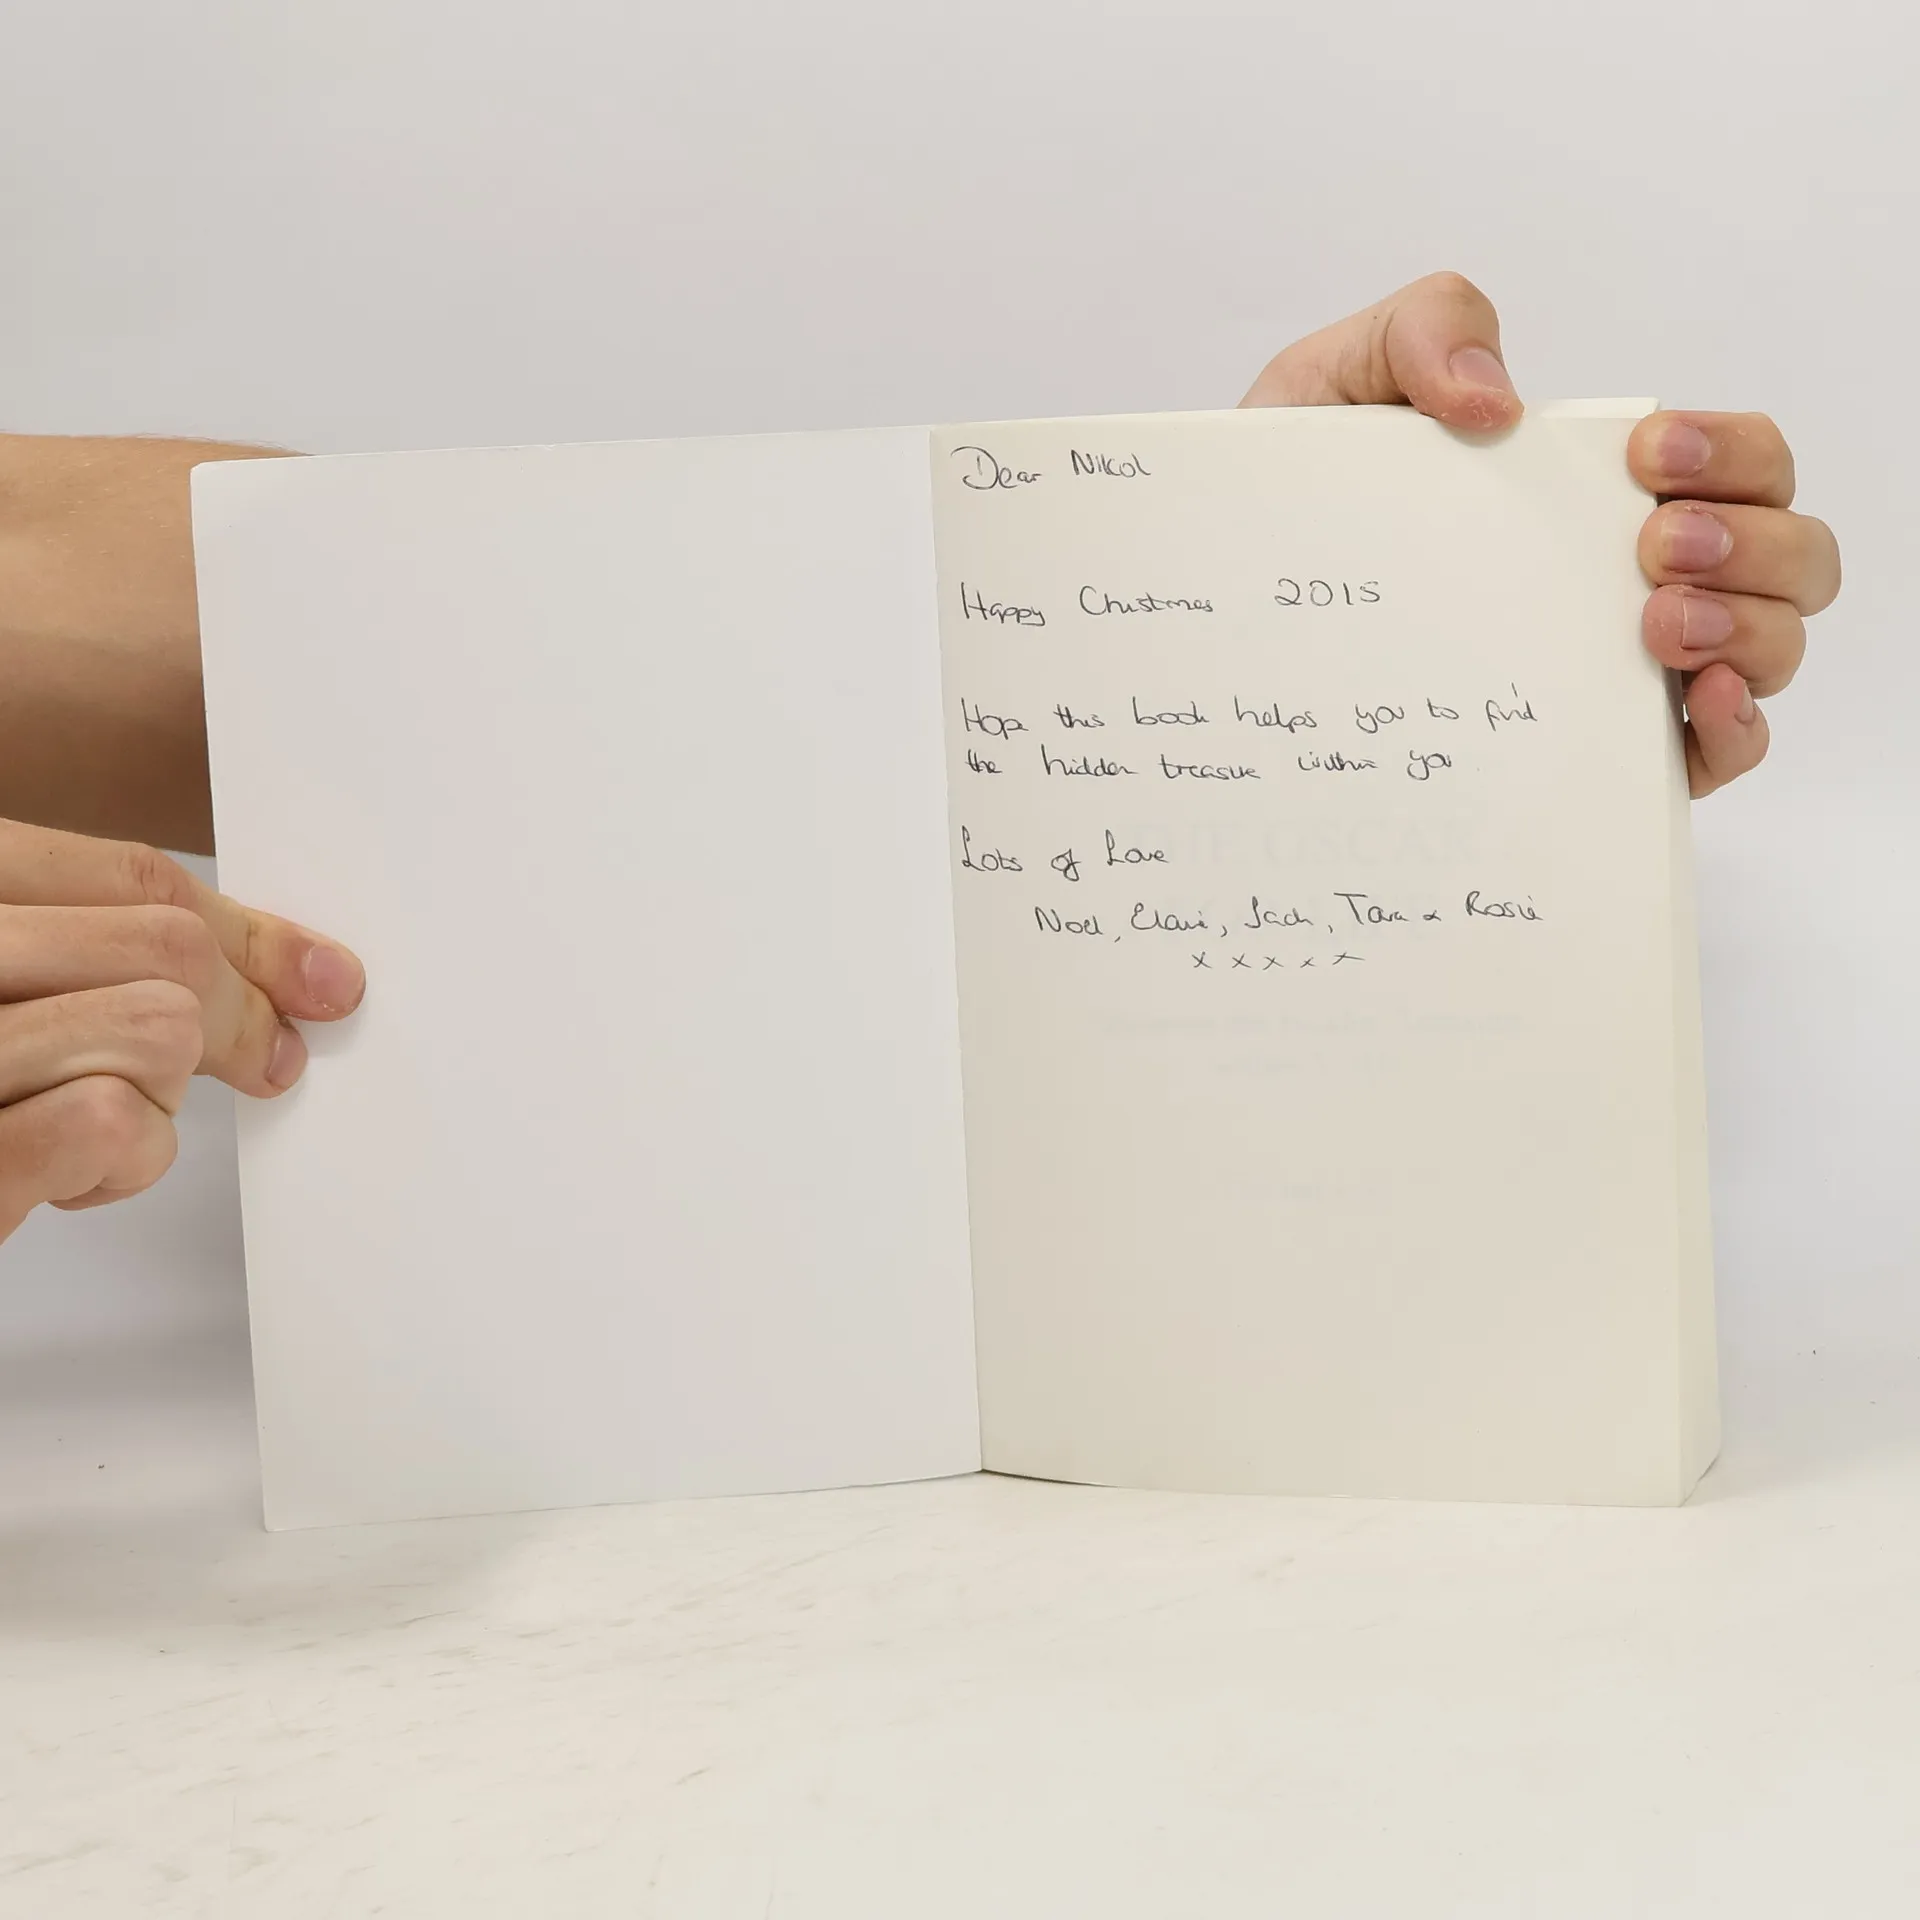 Dear Nikol
Happy Christmas 2015
Hope this book helps you to find
the hidden treasure within you
Lots of Love
Noel, Elaine, Jack, Tara & Rosie
x x x x x
THE OSCAR